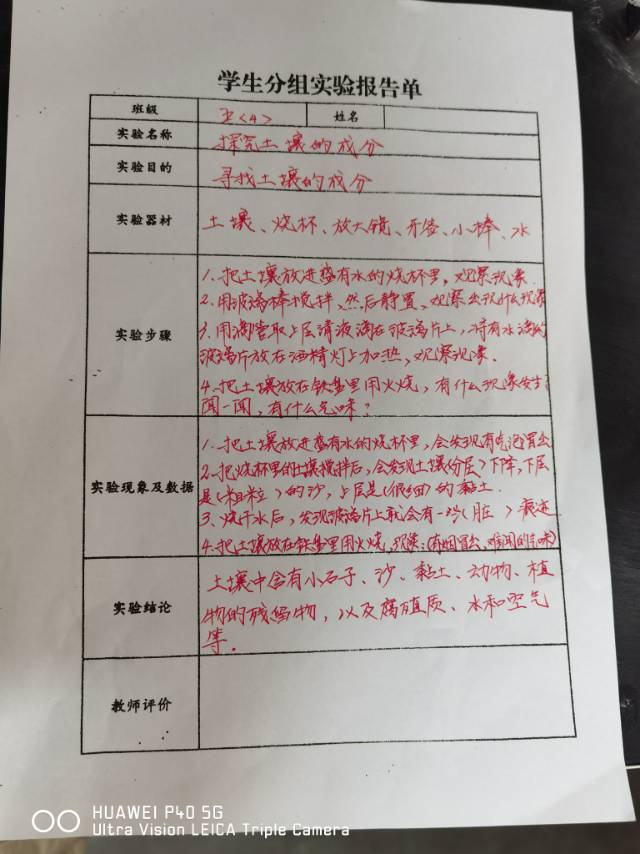 学生分组实验报告单
班级 五<4> 姓名
实验名称 探究土壤的成分
实验目的 寻找土壤的成分
实验器材 土壤、烧杯、放大镜、牙签、小棒、水
实验步骤
1、把土壤放进盛有水的烧杯里,观察现象.
2、用玻璃棒搅拌、然后静置、观察出现什么现象
3、用滴管取上层清液滴在玻璃片上,将有水滴的
玻璃片放在酒精灯上加热,观察现象.
4、把土壤放在铁盘里用火烧,有什么现象发生?
闻一闻,有什么气味?
实验现象及数据
1、把土壤放进盛有水的烧杯里,会发现有气泡冒出
2、把烧杯里的土壤搅拌后,会发现土壤(分层)下降,下层
是(粗粒)的沙,上层是(很细)的黏土.
3、烧干水后,发现玻璃片上就会有一些(脏)痕迹
4、把土壤放在铁盘里用火烧,现象:(有烟冒出、难闻的气味)
实验结论
土壤中含有小石子、沙、黏土、动物、植
物的残留物,以及腐殖质、水和空气
等.
教师评价
HUAWEI P40 5G
Ultra Vision LEICA Triple Camera